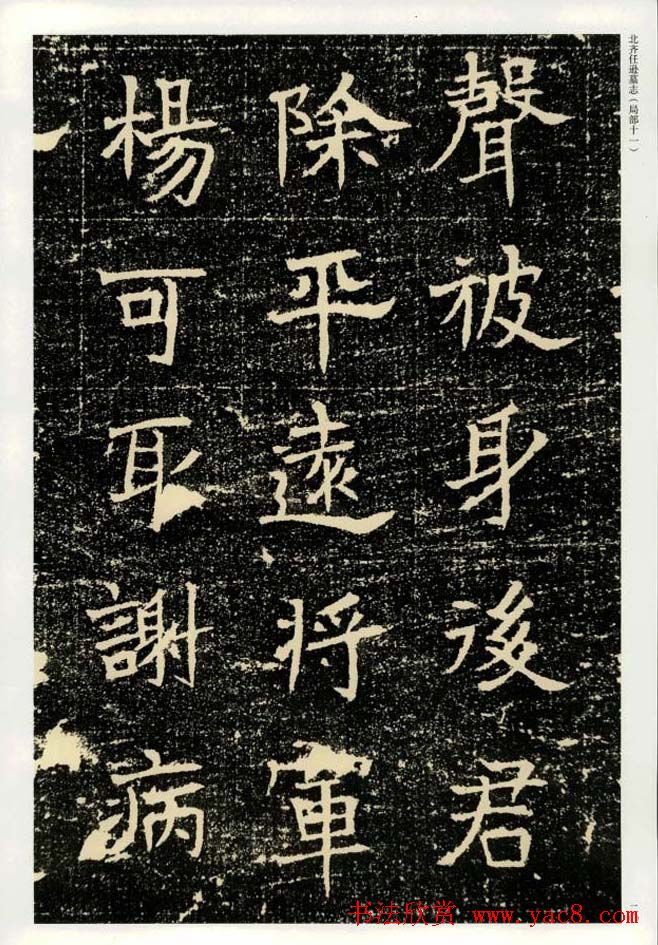 北齐任逊墓志（局部十一）
聲被身後君
除平遠將軍
楊可取謝病
一
书法欣赏 www.yac8.com